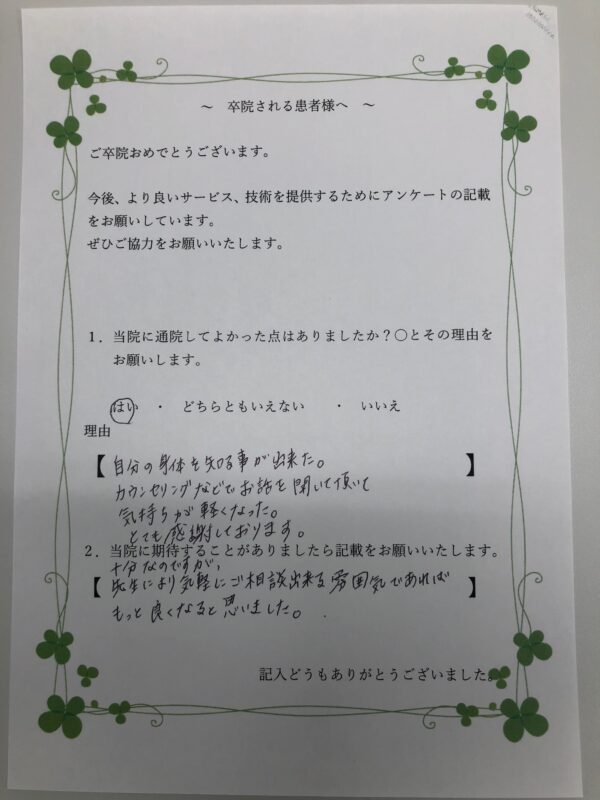 ～　卒院される患者様へ　～
ご卒院おめでとうございます。
今後、より良いサービス、技術を提供するためにアンケートの記載
をお願いしています。
ぜひご協力をお願いいたします。
１．当院に通院してよかった点はありましたか？〇とその理由を
お願いします。
はい　・　どちらともいえない　・　いいえ
理由
【自分の身体を知る事が出来た。】
カウンセリングなどでお話を聞いて頂いて
気持ちが軽くなった。
とても感謝しております。
２．当院に期待することがありましたら記載をお願いいたします。
十分なのですが、
【先生により気軽にご相談出来る雰囲気であれば】
もっと良くなると思いました。
記入どうもありがとうございました。